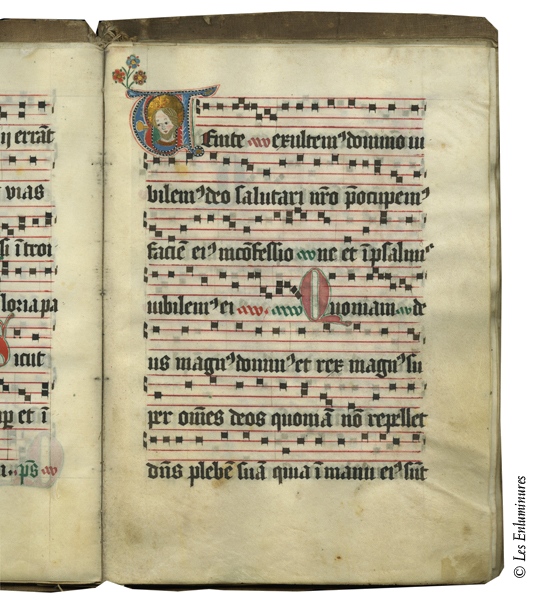 ij errāt
vias
si ītroi
loria pa
icut
et ī
ps̄
Venite exultem⁹ domino iu
bilem⁹ deo salutari nr̄o p̄ocupem⁹
faciē ei⁹ in cōfessio ne et ī psalmi
iubilem⁹ ei Quoniam de
us magn⁹ domin⁹ et rex magn⁹ su
per om̄es deos quoniā nō repellet
dn̄s plebē suā quia ī manu ei⁹ sūt
© Les Enluminures